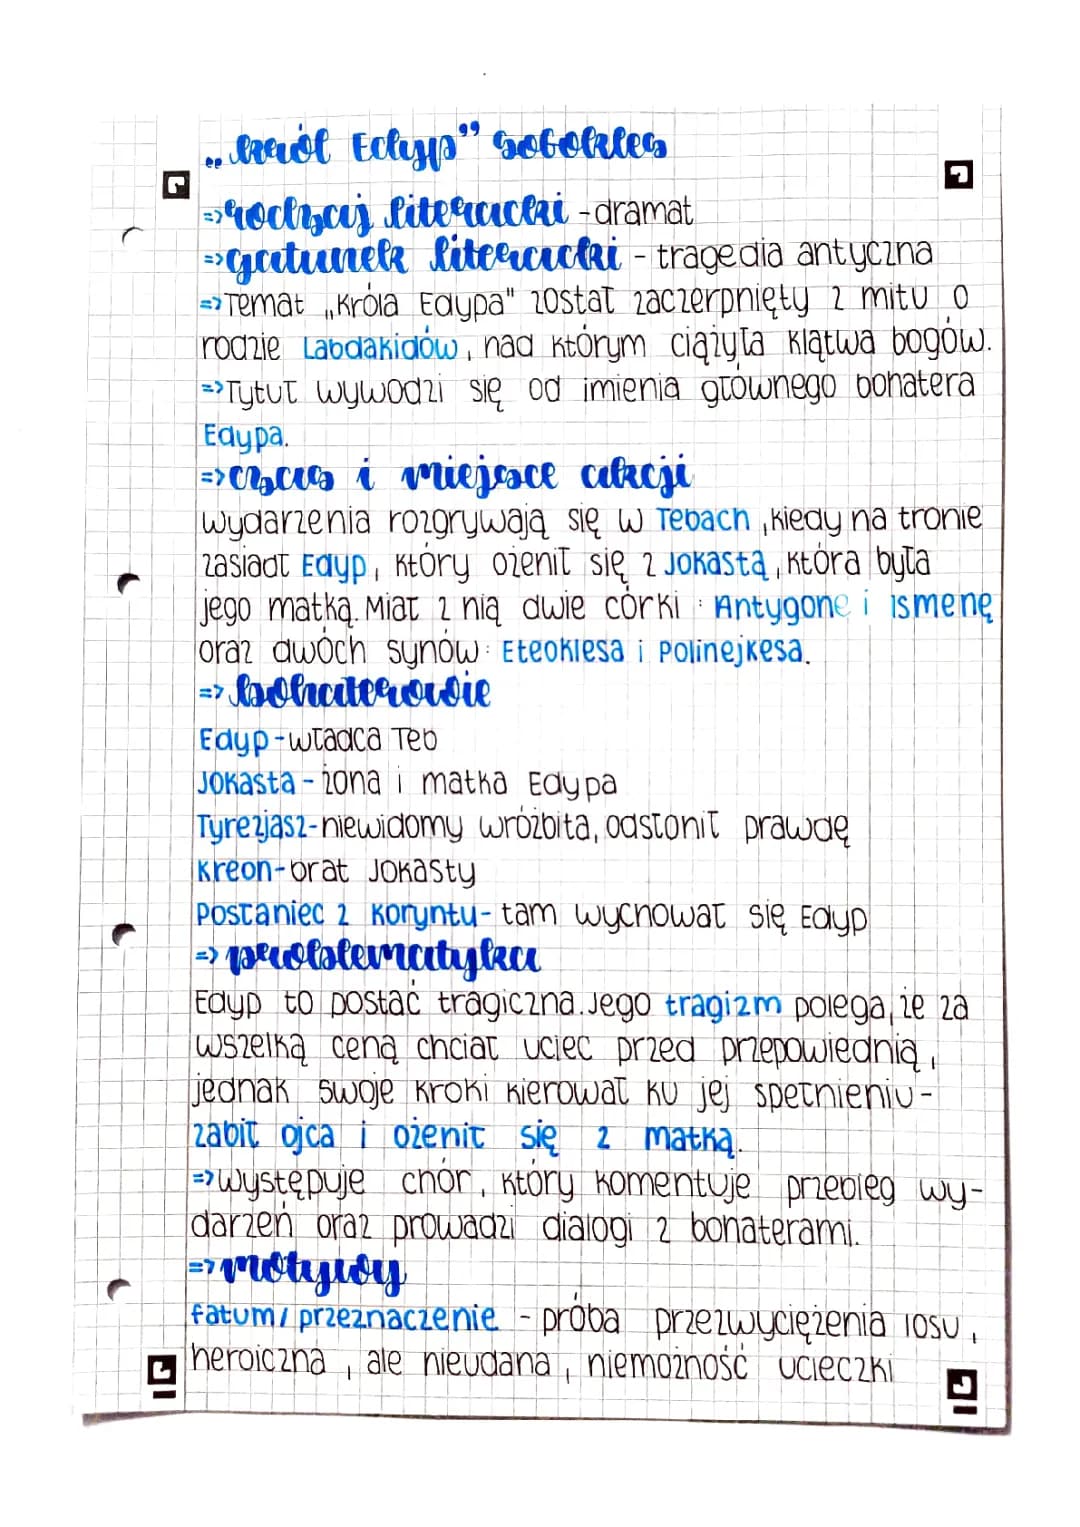 „Król Edyp” Sofokles
=> rodzaj literacki - dramat
=> gatunek literacki - tragedia antyczna
=> Temat „Króla Edypa" został zaczerpnięty z mitu o
rodzie Labdakidów, nad którym ciążyła klątwa bogów.
=> Tytuł wywodzi się od imienia głównego bohatera
Edypa.
=> czas i miejsce akcji
wydarzenia rozgrywają się w Tebach, kiedy na tronie
zasiadł Edyp, który ożenił się z Jokastą, która była
jego matką. Miał z nią dwie córki: Antygone i Ismenę
oraz dwóch synów: Eteoklesa i Polinejkesa.
=> bohaterowie
Edyp - władca Teb
Jokasta - żona i matka Edypa
Tyrezjasz - niewidomy wróżbita, odsłonił prawdę
Kreon - brat Jokasty
Posłaniec z Koryntu - tam wychował się Edyp
=> problematyka
Edyp to postać tragiczna. Jego tragizm polega, że za
wszelką ceną chciał uciec przed przepowiednią,
jednak swoje kroki kierował ku jej spełnieniu -
zabił ojca i ożenił się z matką.
=> występuje chór, który komentuje przebieg wy-
darzeń oraz prowadzi dialogi z bohaterami.
=> motywy
fatum/przeznaczenie - próba przezwyciężenia losu,
heroiczna, ale nieudana, niemożność ucieczki